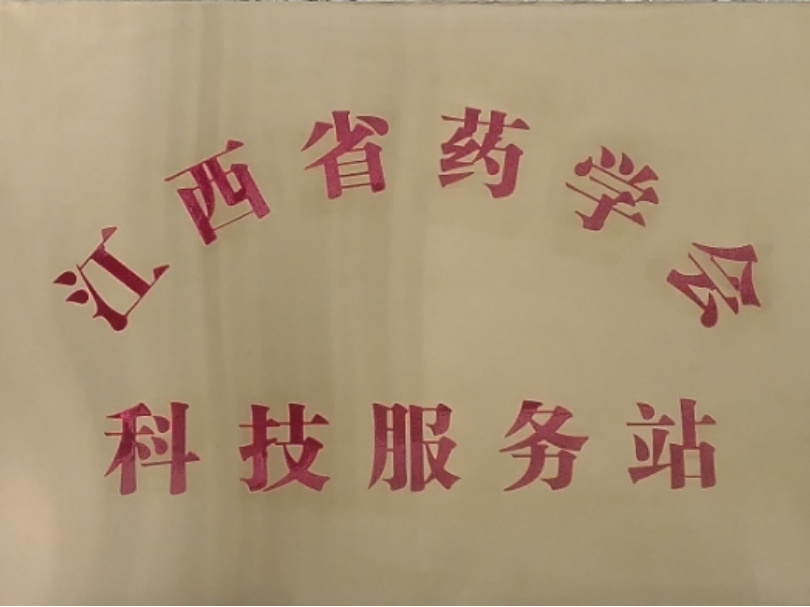 江西省药学会
科技服务站